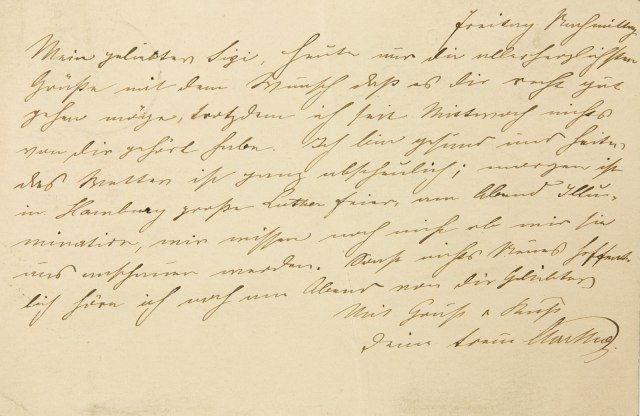 Freitag Nachmittag
Mein geliebter Sigi, heute nur die allerherzlichsten
Grüße mit dem Wunsch daß es dir recht gut
gehen möge, trotzdem ich seit Mittwoch nichts
von dir gehört habe. Ich bin gesund und heiter
das Wetter ist ganz abscheulich; morgen ist
in Hamburg große Luther Feier, am Abend Illu-
mination, wir wissen noch nicht ob wir sie
uns anschauen werden. Sonst nichts Neues hoffent-
lich höre ich noch am Abend von dir Geliebter
Mit Gruß u Kuß
deine treue